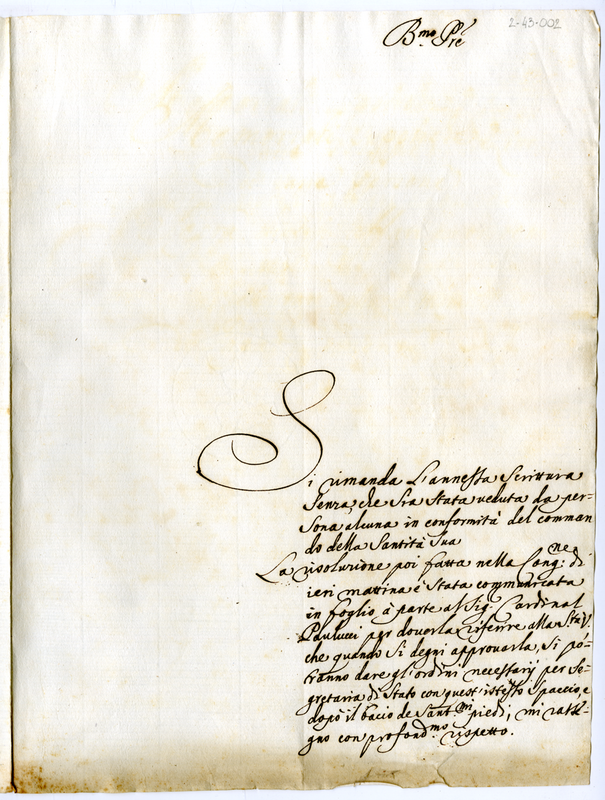 2-43-002
B.mo Pre
Si rimanda l'annessa scrittura
senza, che sia stata veduta da per-
sona alcuna in conformità del comman
do della Santità Sua
La risoluzione poi fatta nella Cong.ne di
ieri mattina è stata communicata
in foglio à parte al Sig. Cardinal
Paulucci per doverla riferire alla S.tà V.
che quando si degni approvarla, si po-
tranno dare gl'ordini necessarij per se-
gretaria di stato con quest'istesso spaccio, e
dopo il bacio de Sant.mi piedi, mi rasse-
gno con profond.mo rispetto.